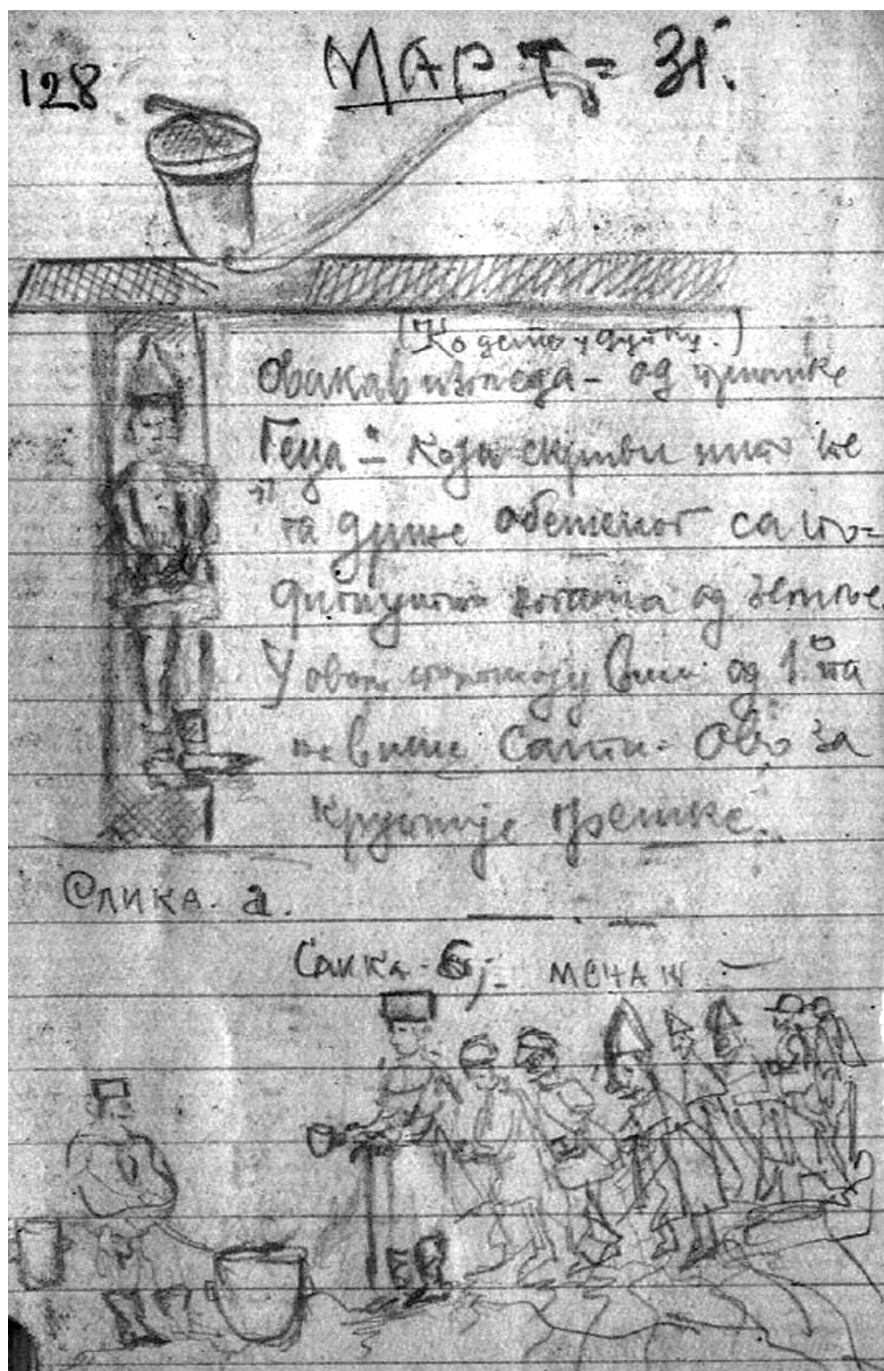 128 МАРТ = 31.
(Ко дете у дупку.)
Овакав изгледа - од
Геца - који скриви
га држе обешеног са по=
дигнутим ногама од земље
У овом положају више од 1 па
више сати. Ово за
крупније грешке.
Слика. а.
Слика - Б; - МЕНАЖ -